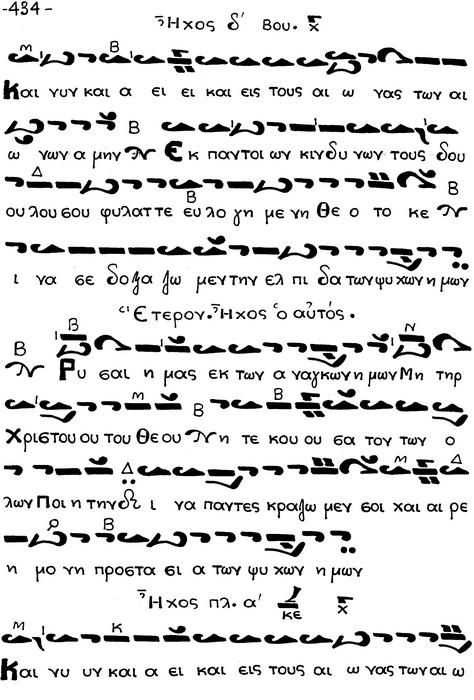 -434-
Ἦχος δ′ Βου.
Και νυν και α ει ει και εις τους αι ω νας των αι
ω νων α μην Εκ παντοι ων κινδυ νων τους δου
ου λου σου φυλαττε ευ λο γη με νη Θε ο το κε
ι να σε δοξα ζω μεν την ελ πι δα των ψυ χων η μων
Ετερον. Ἦχος ὁ αὐτός.
Ρυ σαι η μας εκ των α ναγκων η μων Μη τηρ
Χριστου ου του Θε ου η τε κου ου σα τον των ο
λων Ποι η την ι να παντες κραζω μεν σοι χαι αι ρε
η μο νη προστα σι α των ψυ χων η μων
Ἦχος πλ. α′ κε
Και νυ υν και α ει και εις τους αι ω νας των αι ω